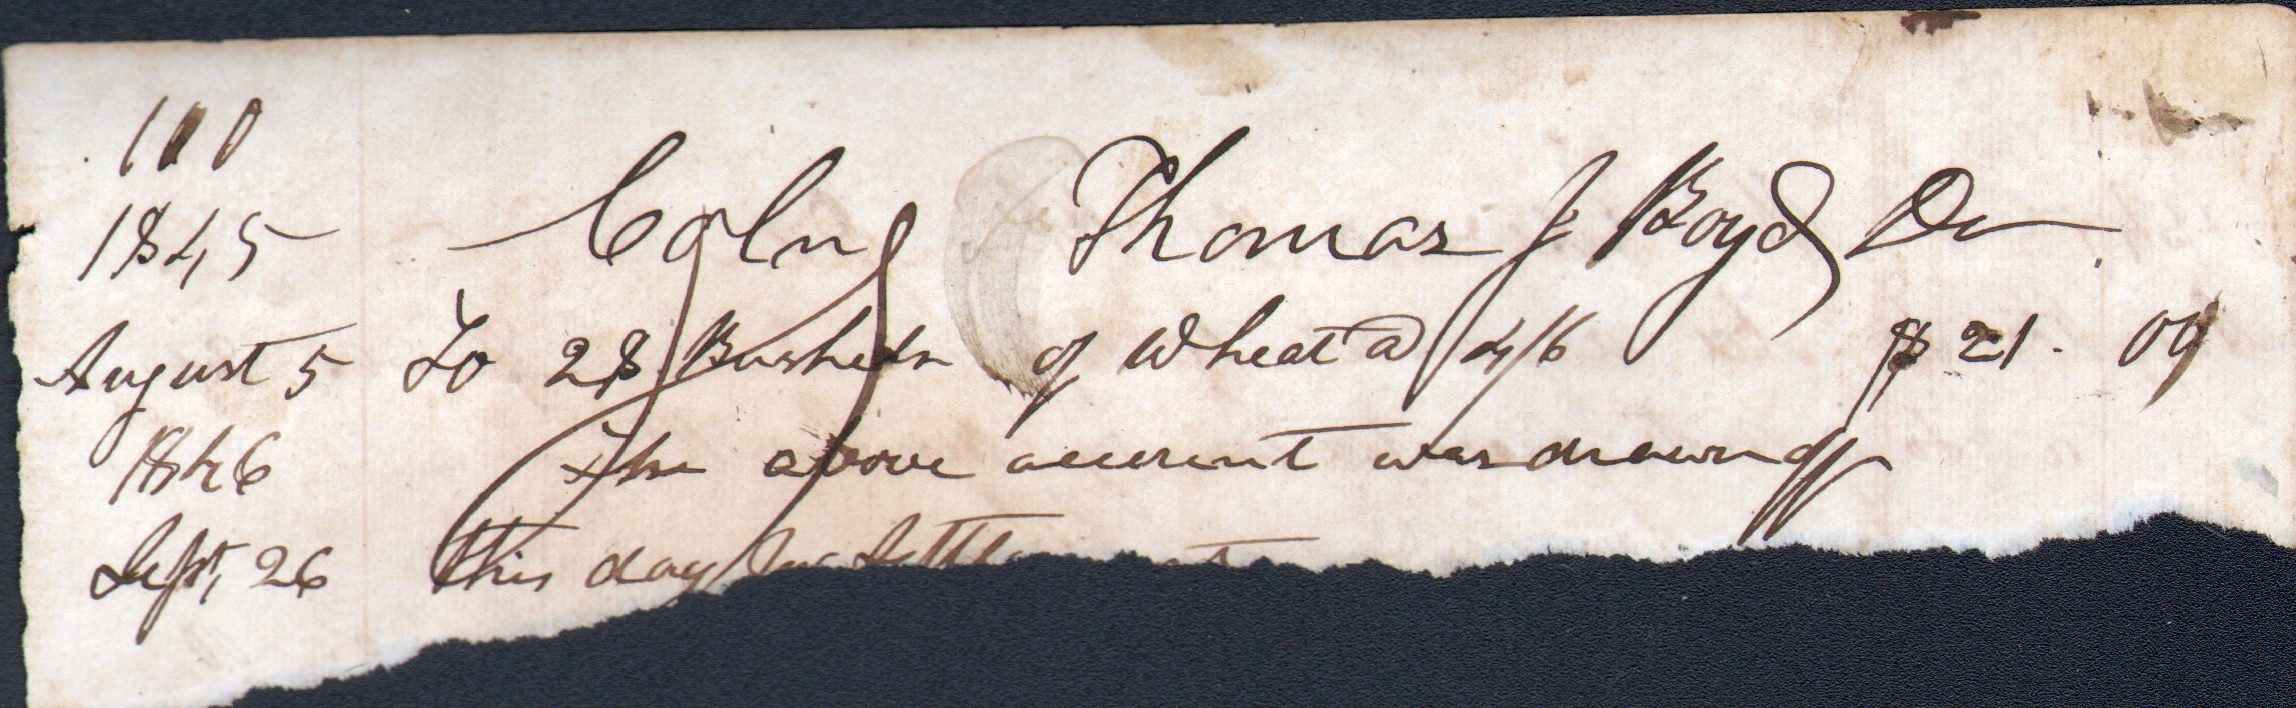 110
1845 Coln Thomas J Boyd Dr
August 5 To 28 Bushels of Wheat a 4/6 $ 21. 09
1846 The above account was drawn off
Sept, 26 this day for Settle